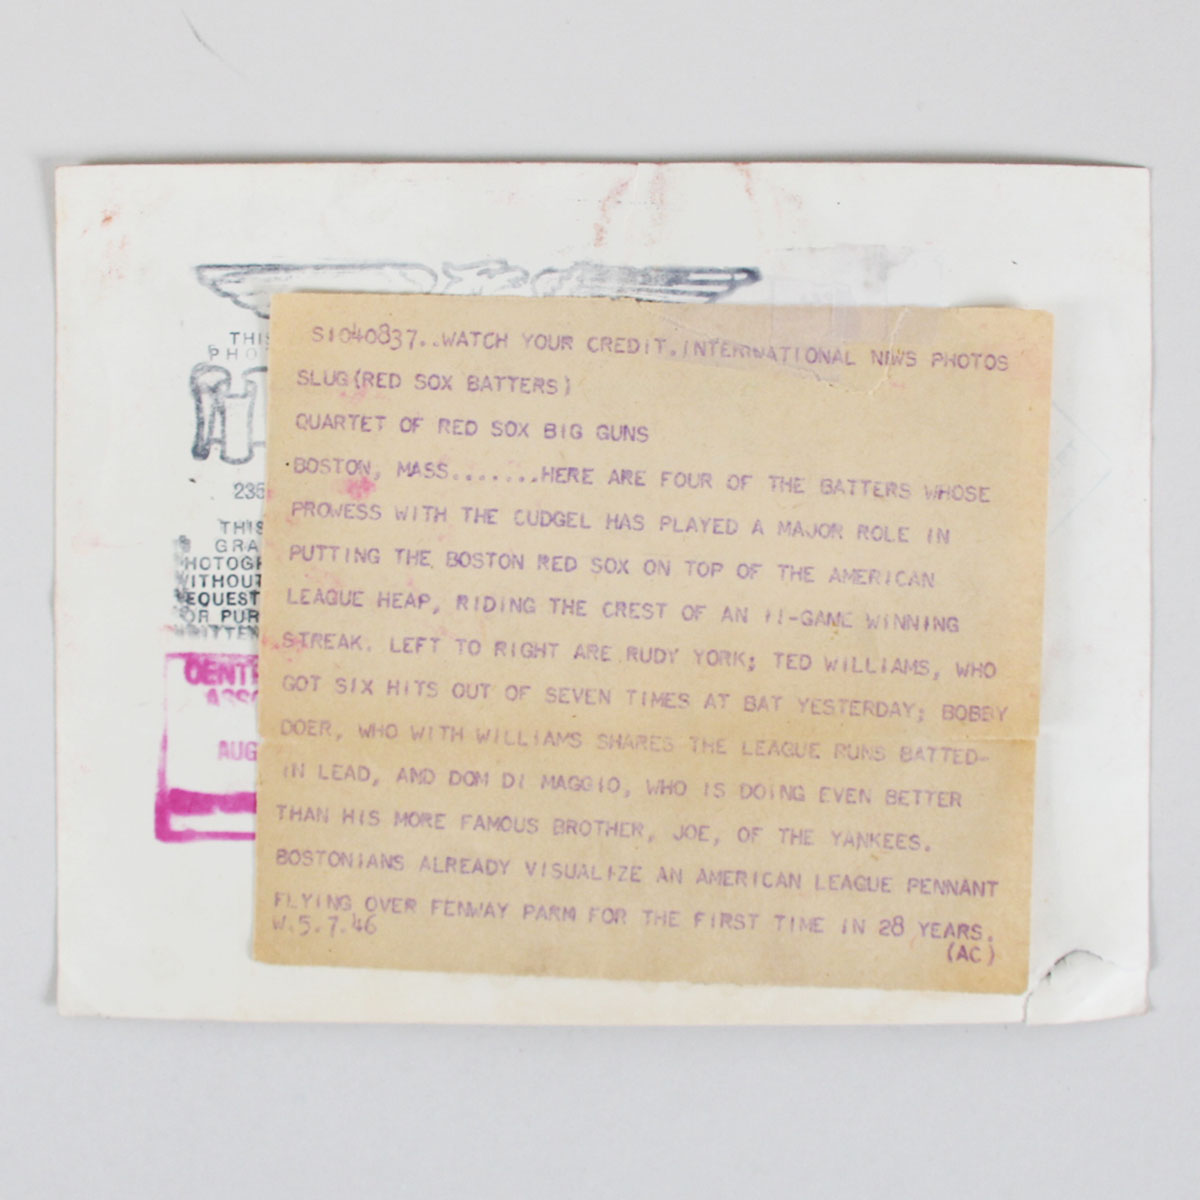 THIS
PHO
235
THIS
GRA
HOTOGR
WITHOUT
REQUEST
OR PUR
WRITTEN
CENTR
ASSO
AUG
S1040837..WATCH YOUR CREDIT.INTERNATIONAL NEWS PHOTOS
SLUG(RED SOX BATTERS)
QUARTET OF RED SOX BIG GUNS
BOSTON, MASS.......HERE ARE FOUR OF THE BATTERS WHOSE
PROWESS WITH THE CUDGEL HAS PLAYED A MAJOR ROLE IN
PUTTING THE BOSTON RED SOX ON TOP OF THE AMERICAN
LEAGUE HEAP, RIDING THE CREST OF AN 11-GAME WINNING
STREAK. LEFT TO RIGHT ARE RUDY YORK; TED WILLIAMS, WHO
GOT SIX HITS OUT OF SEVEN TIMES AT BAT YESTERDAY; BOBBY
DOER, WHO WITH WILLIAMS SHARES THE LEAGUE RUNS BATTED-
IN LEAD, AND DOM DI MAGGIO, WHO IS DOING EVEN BETTER
THAN HIS MORE FAMOUS BROTHER, JOE, OF THE YANKEES.
BOSTONIANS ALREADY VISUALIZE AN AMERICAN LEAGUE PENNANT
FLYING OVER FENWAY PARM FOR THE FIRST TIME IN 28 YEARS.
W.5.7.46
(AC)